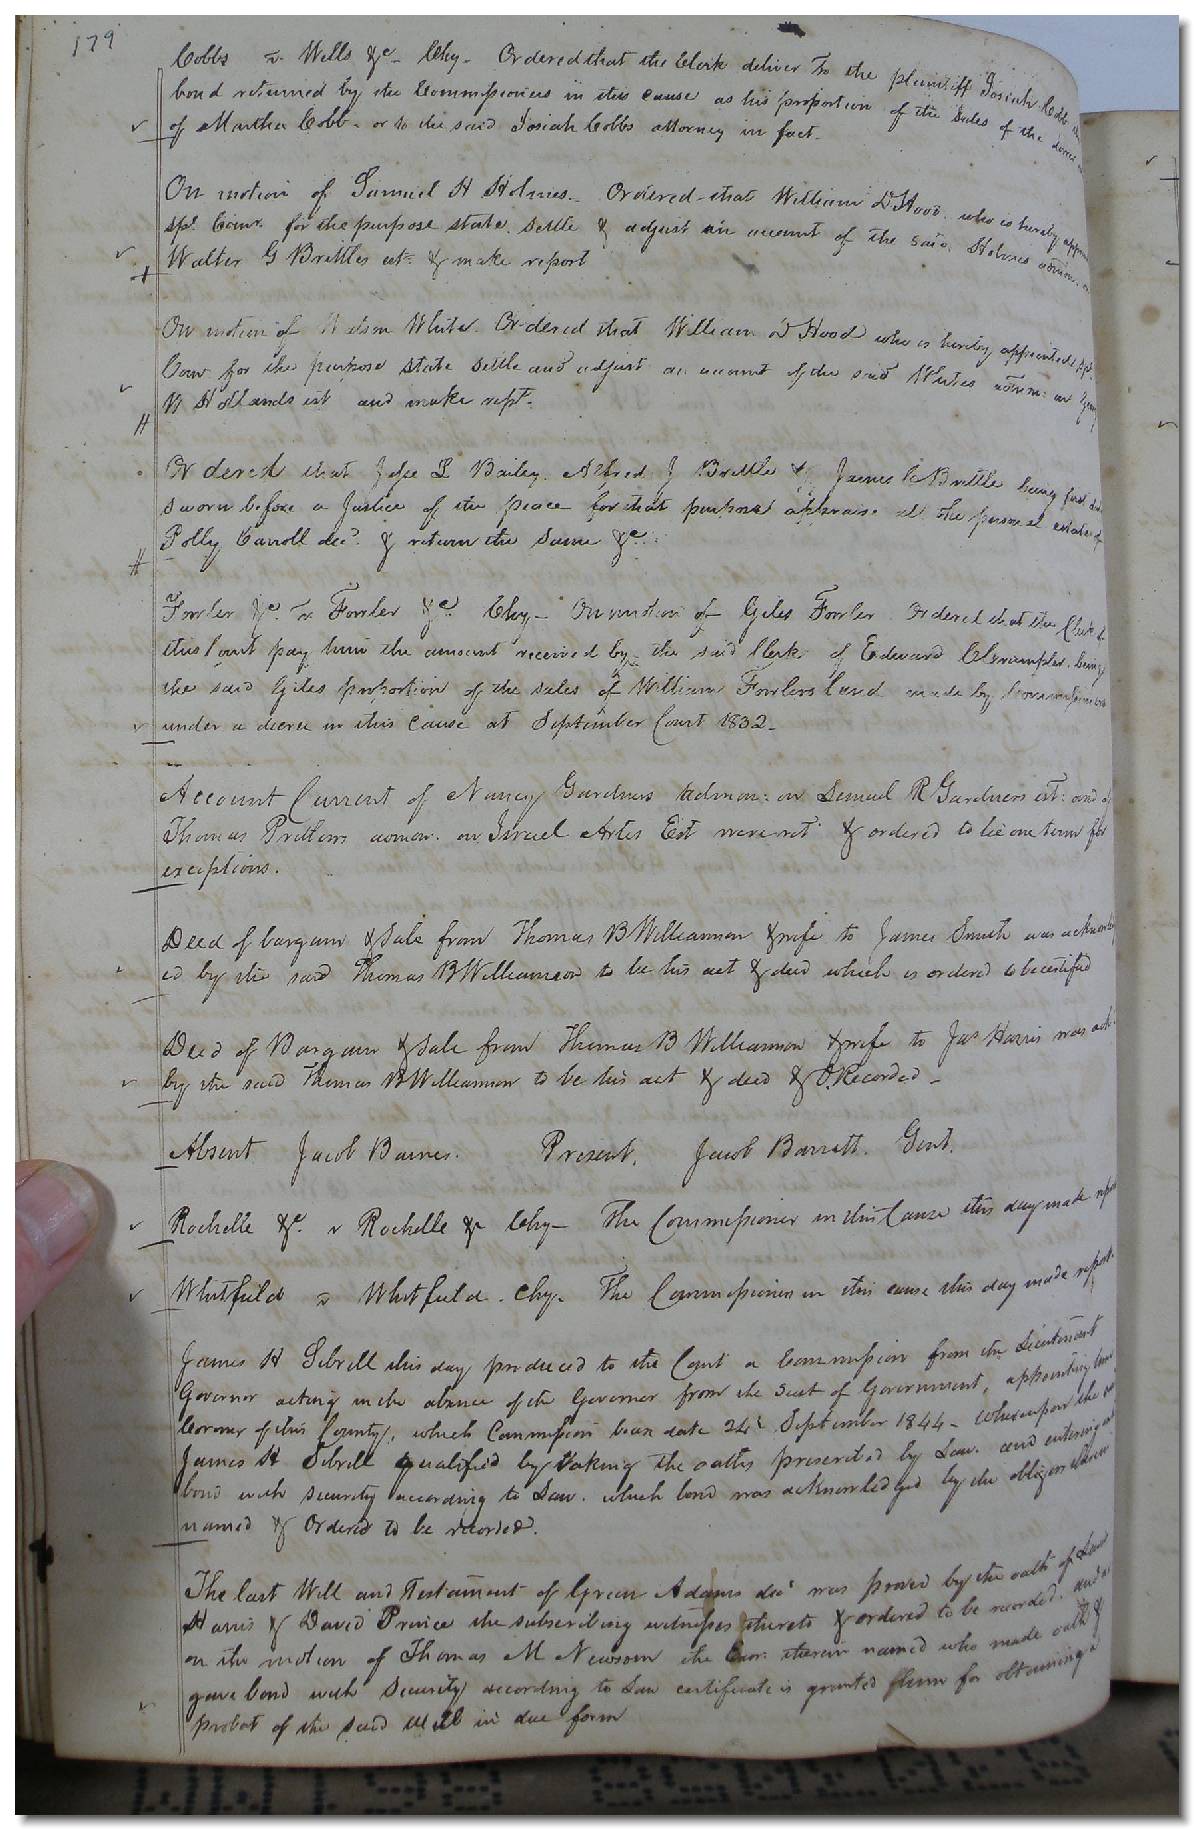 179
Cobbs v. Wells &c - Chy - Ordered that the Clerk deliver to the plaintiff Josiah Cobbs the
bond returned by the Commissioners in this cause as his proportion of the sales of the
of Martha Cobb - or to the said Josiah Cobbs attorney in fact -
On motion of Samuel H Holmes - Ordered that William D Hood who is hereby
spl. Comr. for the purpose state settle & adjust an account of the said Holmes admon.
Walter G Brittles est: & make report
On motion of White. Ordered that William D Hood who is hereby appointed spl.
Com for the purpose state settle and adjust an account of the said Whites admn: on
H Hollands est and make rept.
Ordered that Jesse L Bailey. Alfred J Brittle & James C Brittle being first
sworn before a Justice of the peace for that purpose appraise the personal estate of
Polly Carroll decd. & return the same &c.
Fowler &c. v Fowler &c. Chy - On motion of Giles Fowler Ordered that the Clerk of
this Court pay him the amount received by the said Clerk of Edward Crumpler. being
the said Giles proportion of the sales of William Fowlers land made by Commissioners
under a decree in this cause at September Court 1832 -
Account Current of Nancy Gardners Admon: on Lemuel R Gardners est: and of
Thomas Pretlows admon. on Israel Artis Est were ret & ordered to lie one term for
exceptions.
Deed of bargain & Sale from Thomas B Williamson & wife to James Smith was acknowledg
ed by the said Thomas B Williamson to be his act & deed which is ordered to be certified
Deed of Bargain & Sale from Thomas B Williamson & wife to Jas Harris was ack
by the said Thomas B Williamson to be his act & deed & O. Recorded -
Absent Jacob Barnes. Present, Jacob Barrett. Gent.
Rochelle &c. v Rochelle &c Chy - The Commissioner in this Cause this day made report
Whitfield v Whitfield. Chy. The Commissioner in this cause this day made report.
James H Sebrell this day produced to the Court a Commission from the Lieutenant
Governor acting in the absence of the Governor from the Seat of Government, appointing him
Coroner of this County, which Commission bears date 24 September 1844 - Whereupon the
James H Sebrell qualified by taking the oaths prescribed by Law. and entering
bond with security according to Law. which bond was acknowledged by the obligors
named & Ordered to be recorded.
The last Will and Testament of Green Adams decd was proved by the oath of
Harris & David Prince the subscribing witnesses thereto & ordered to be recorded. and
on the motion of Thomas M Newsom the Exor: therein named who made oath &
gave bond with security according to Law certificate is granted him for obtaining a
probat of the said Will in due form